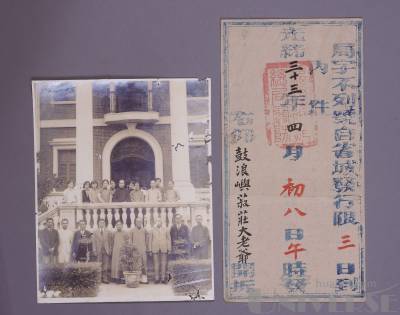 局字不列號自省城發行限三日到
內件
光緒三十三年四月初八日午時發
鼓浪嶼菽莊大老爺
開拆
UNIVERSE